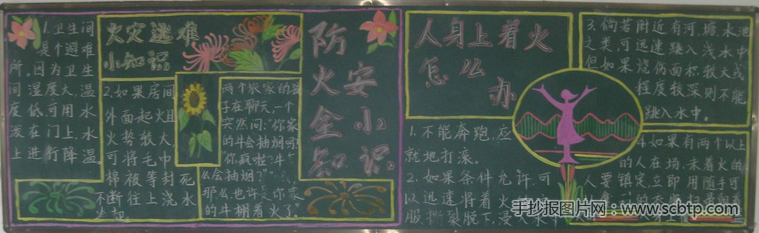 1.卫生间
火灾逃难
小知识
2.如果房间
外面起火且
火势较大,
可将毛巾
棉被等封死
不断往上浇水
两个农家的孩
子在聊天,一个
突然问:"你家
的牛会抽烟吗?"
"你疯啦?牛
么会抽烟?"
那么也许是你家
的牛棚着火了。
防火安全小知识
人身上着火
怎么办
1.不能奔跑,应
就地打滚。
2.如果条件允许可
以迅速将着火
服撕裂脱下,浸入水中
3.倘若附近有河、塘、水池
之类可迅速跳入浅水中
但如果烧伤面积较大或
程度较深则不能
跳入水中。
4.如果有两个以上
的人在场,未着火的
人要镇定立即用随手可
手抄报图片网 www.scbtp.com